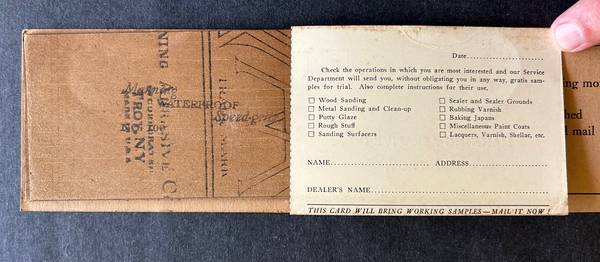 Date
Check the operations in which you are most interested and our Service
Department will send you, without obligating you in any way, gratis sam-
ples for trial. Also complete instructions for their use.
☐ Wood Sanding
☐ Metal Sanding and Clean-up
☐ Putty Glaze
☐ Rough Stuff
☐ Sanding Surfacers
☐ Sealer and Sealer Grounds
☐ Rubbing Varnish
☐ Baking Japans
☐ Miscellaneous Paint Coats
☐ Lacquers, Varnish, Shellac, etc.
NAME
ADDRESS
DEALER'S NAME
THIS CARD WILL BRING WORKING SAMPLES — MAIL IT NOW !
WATERPROOF
Speed-grits
TROY, NY
U.S.A
mail